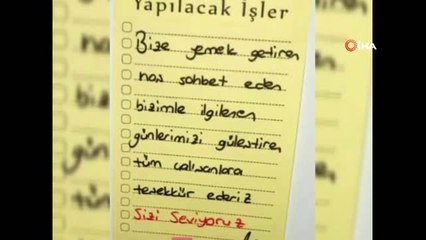 Yapılacak İşler
İHA
Bize yemek getiren
hoş sohbet eden
bizimle ilgilenen
günlerimizi güleştiren
tüm çalışanlara
teşekkür ederiz
Sizi Seviyoruz